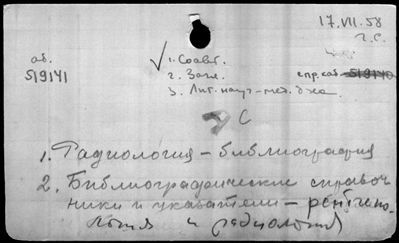 17.VII.58
Г.С.
аб. 519141
1. Соавт.
2. Загл.
3. Лит. науч-мет. д-ка
спр. аб. 519140
С
1. Радиология – библиография
2. Библиографические справоч
ники и указатели – рентгено-
логия и радиология